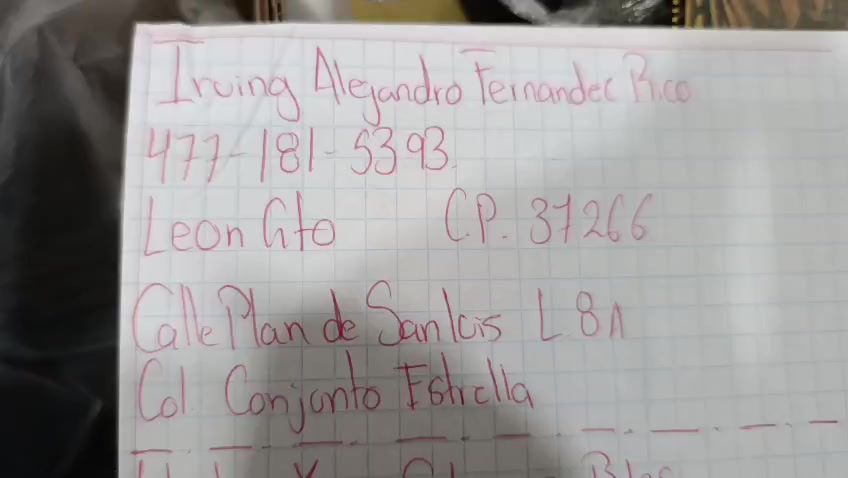 Irving Alejandro Fernandec Rico
477-181-5393
Leon Gto C.P. 37266
Calle Plan de San lois L 8A
Col Conjonto Estrella